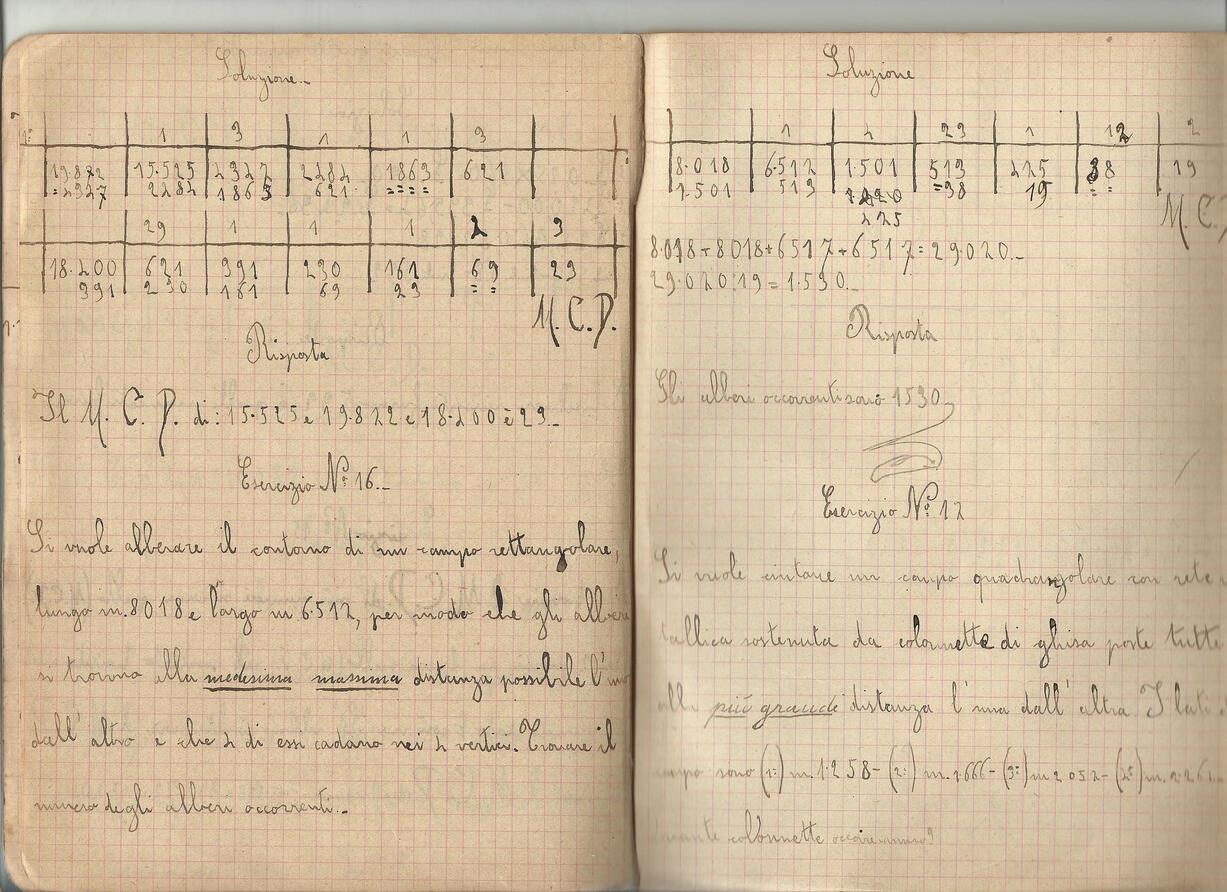 Soluzione.-
1 3 1 1 3
19.872 15.525 2327 2282 1863 621
=2327 2282 1863 621 ====
29 1 1 1 2 3
18.200 621 391 230 161 69 23
391 230 161 69 23 ==
M.C.D.
Risposta
Il M.C.D. di: 15.525 e 19.822 e 18.200 è 23.-
Esercizio No. 16.-
Si vuole alberare il contorno di un campo rettangolare,
lungo m. 8018 e largo m 6.512, per modo che gli alberi
si trovino alla medesima massima distanza possibile l'uno
dall'altro e che 4 di essi cadano nei 4 vertici. Trovare il
numero degli alberi occorrenti.-
Soluzione
1 4 23 1 12 2
8.018 6.517 1.501 513 475 38 19
1.501 513 =38 19
M.C.
8.018+8018+6517+6517=29.020.-
29.020:19=1.530.-
Risposta
Gli alberi occorrenti sono 1530
Esercizio No. 17
Si vuole cintare un campo quadrangolare con rete
tallica sostenuta da colonnette di ghisa poste tutte
alla più grande distanza l'una dall'altra. I lati
campo sono (1°) m. 1.258-(2°) m. 1.666-(3°) m 2 052-(4°)
colonnette occorreranno?